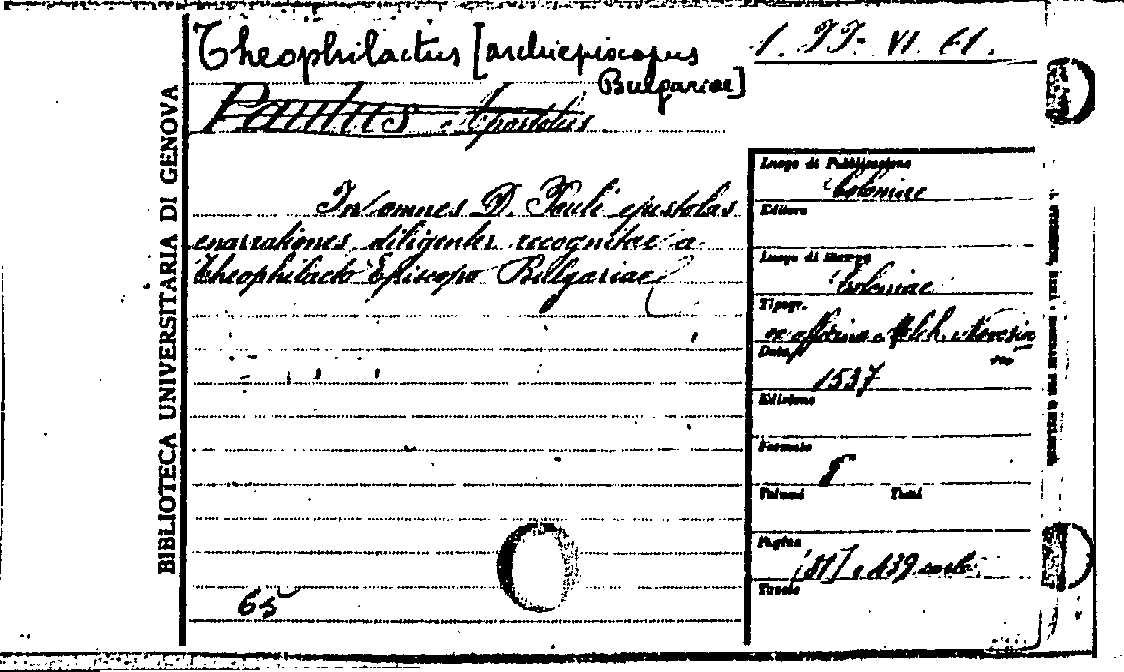 Theophilactus [archiepiscopus
Bulgariae]
1. II. VI. 61.
Paulus Apostolus
In omnes D. Pauli epistolas
enarrationes diligenter recognitae a
Theophilacto Episcopo Bulgariae
65
BIBLIOTECA UNIVERSITARIA DI GENOVA
Luogo di Pubblicazione
Coloniae
Editore
Luogo di Stampa
Coloniae
Tipogr.
ex officina Melch. Novesia
Data
1537
Edizione
Formato
8°
Volumi Tomi
Pagine
439 carte